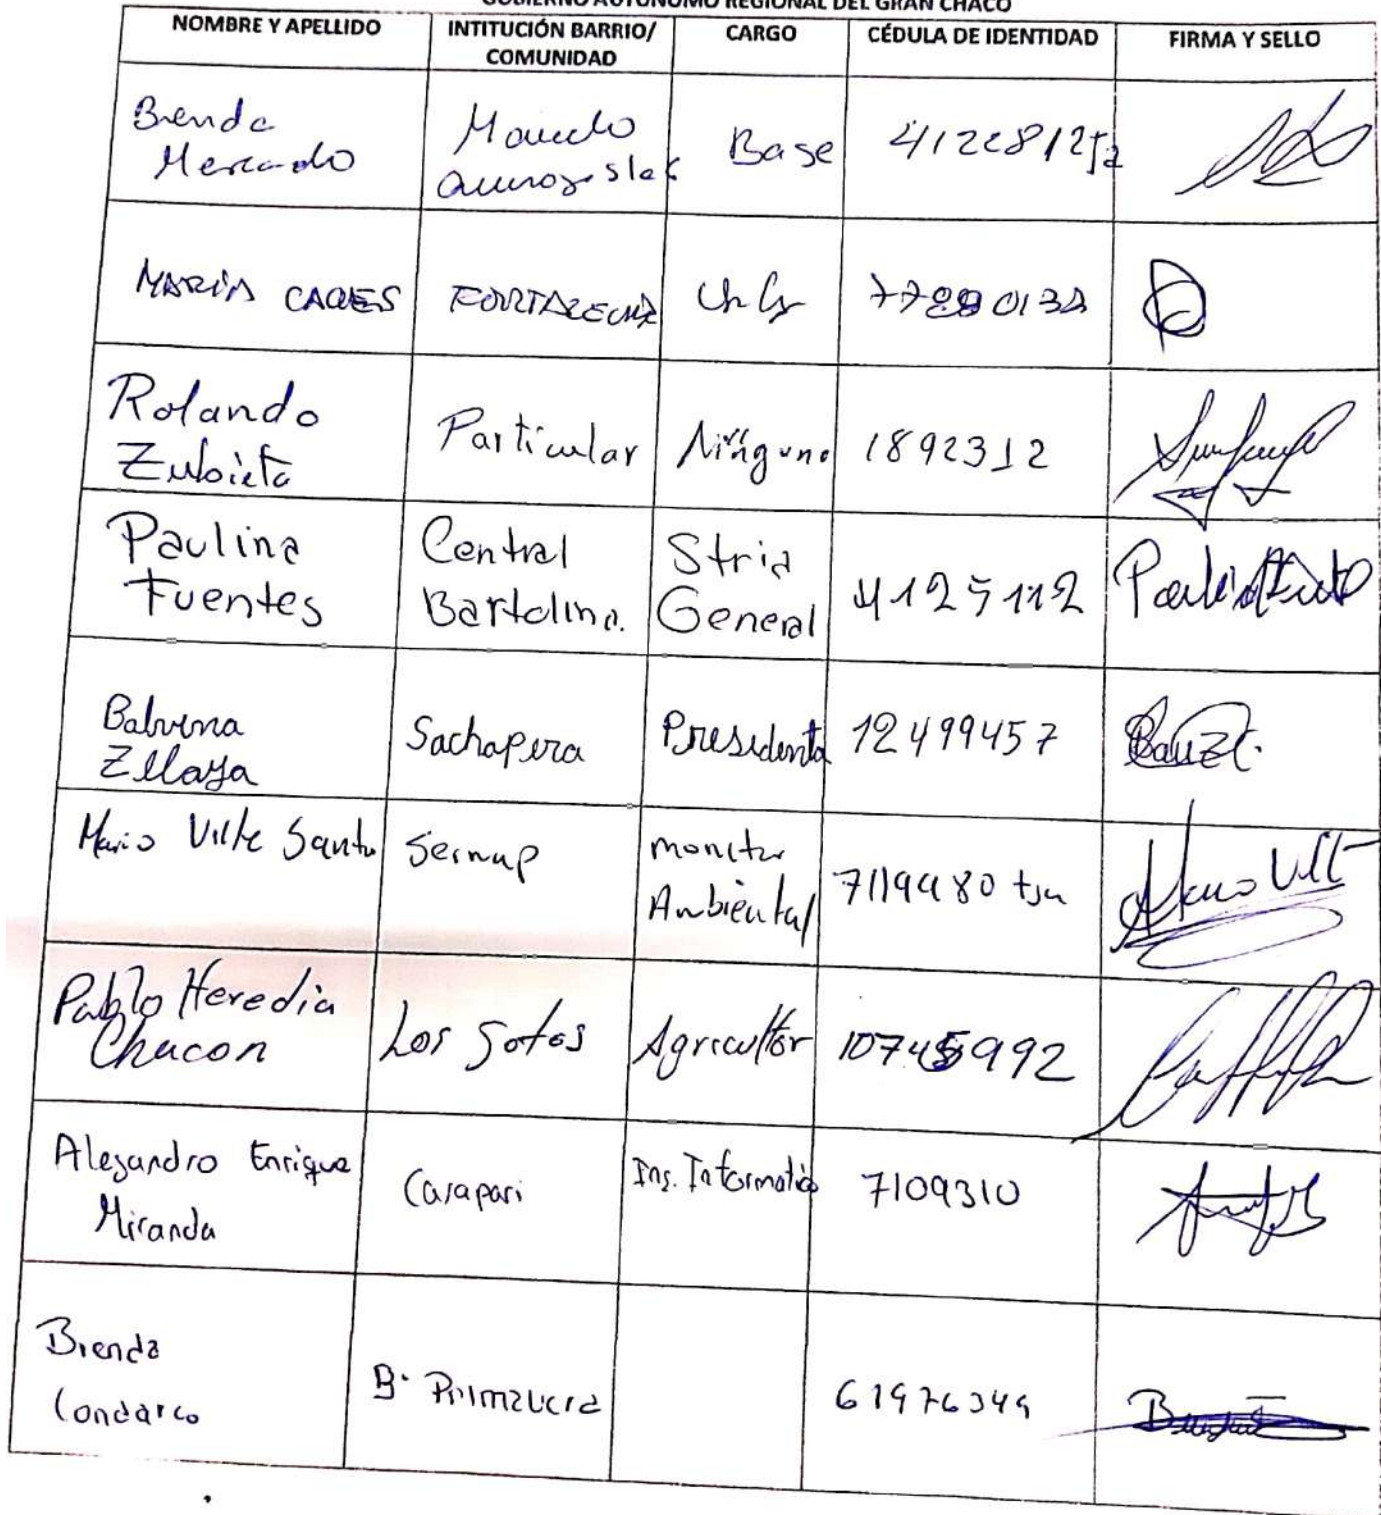 GOBIERNO AUTÓNOMO REGIONAL DEL GRAN CHACO
NOMBRE Y APELLIDO INTITUCIÓN BARRIO/ CARGO CÉDULA DE IDENTIDAD FIRMA Y SELLO
COMUNIDAD
Brenda
Mercado
Base
MARIA FORTALECHA
Rolando
Zubieta
Particular Ninguno 1892312
Paulina
Fuentes
Central
Bartolina.
Stria
General
4125112
Balvina
Zllaya
Sachapera Presidenta 12499457
Mario Sernap
monitor
Ambiental
7119980 tja
Pablo Heredia
Chacon
Los Sotos Agricultor
Alejandro Enrique
Miranda
Carapari Ing. Informatico 7109310
Brenda
Condarco
B. Primavera 61976349